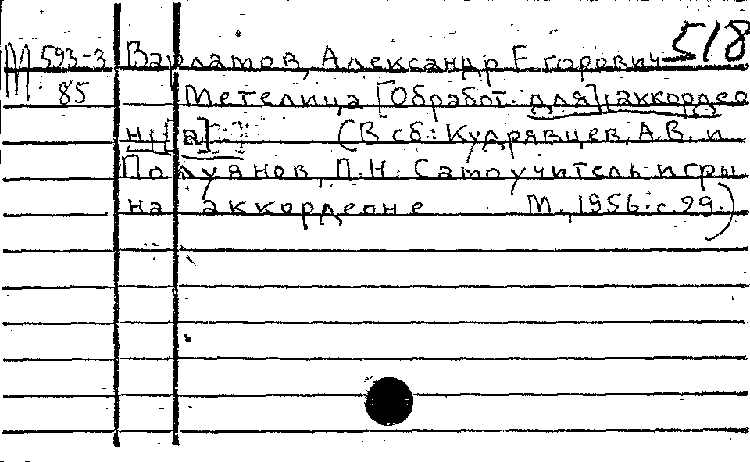 518
М 593-3 Варламов, Александр Егорович
85 Метелица [Обработ. для] аккордео
н[а] (В сб.: Кудрявцев, А.В. и
Полуянов, П.Н. Самоучитель игры
на аккордеоне М., 1956. с. 99.)